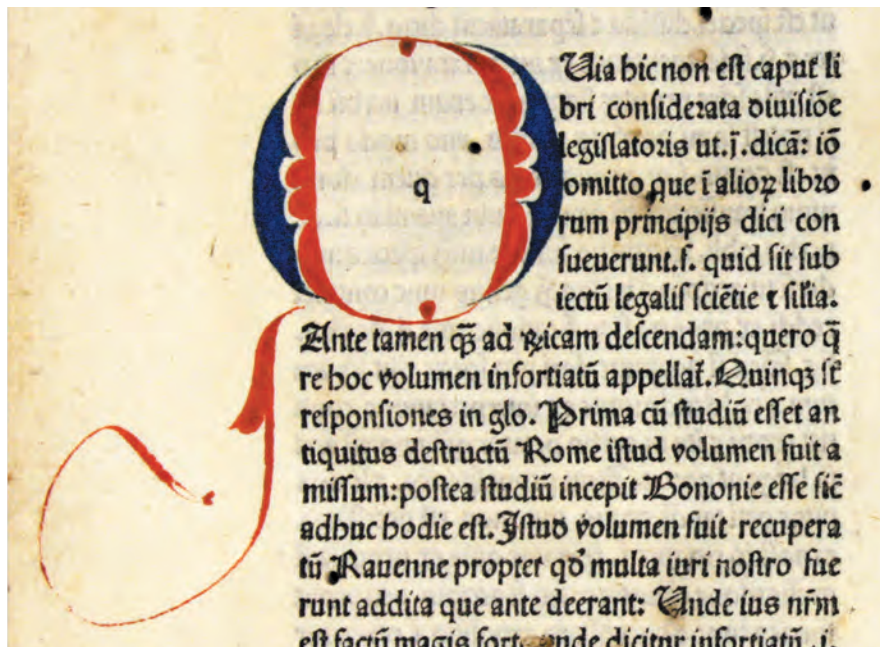 Q
q
Uia hic non est caput li
bri considerata diuisiōe
legislatoris ut.j̄.dicā: iō
omitto que ī alioꝝ libro
rum principijs dici con
sueuerunt.s. quid sit sub
iectū legalis sciētie ⁊ silia:
Ante tamen qꝫ̄ ad descendam:quero q̄
re hoc volumen infortiatū appellat̄.Quinqꝫ st̄
responsiones in glo. Prima cū studiū esset an
tiquitus destructū Rome istud volumen fuit a
missum:postea studiū incepit Bononie esse sic̄
adhuc hodie est. Istud volumen fuit recupera
tū Rauenne propter qd̄ multa iuri nostro fue
runt addita que ante deerant: Unde ius nr̄m
est factū magis forte dicitur infortiatū .i.